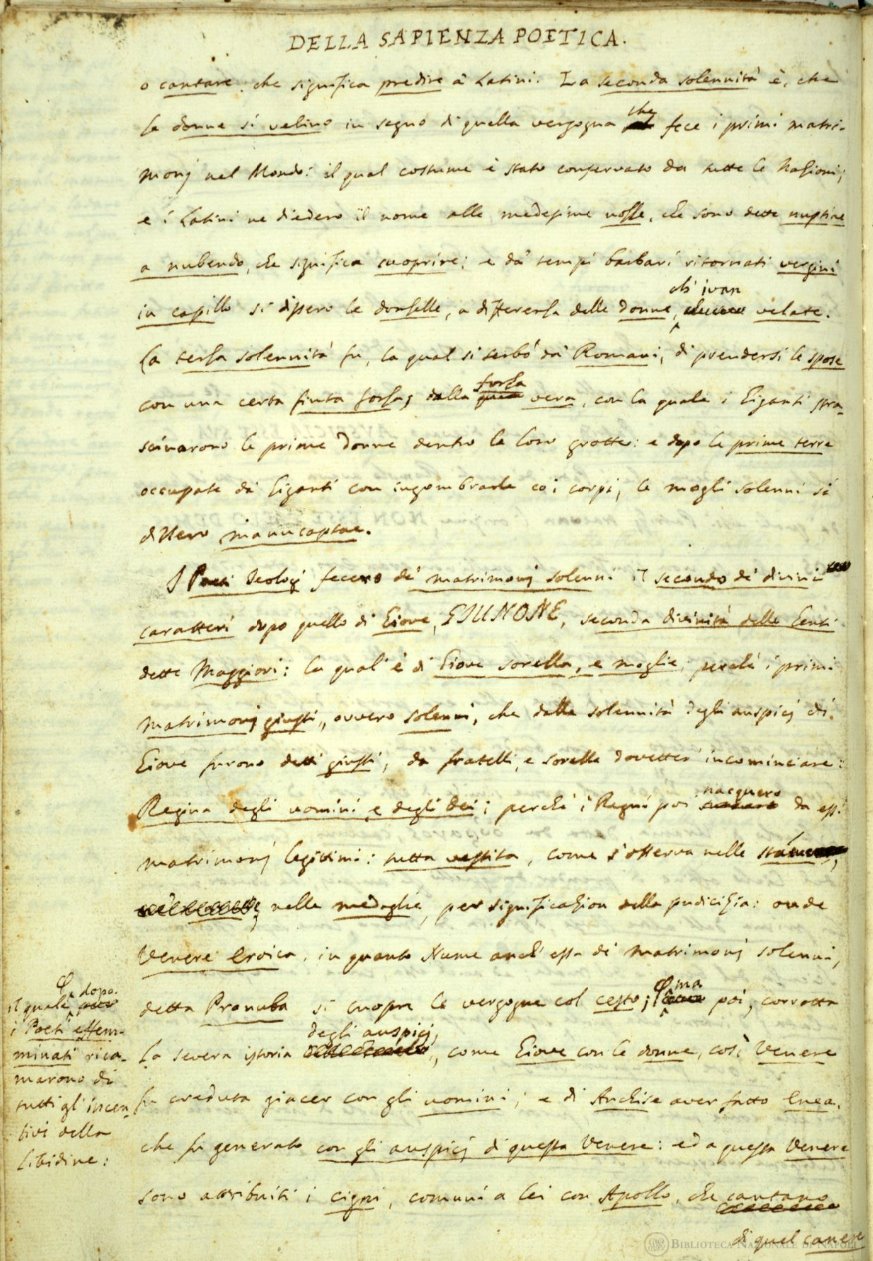 DELLA SAPIENZA POETICA.
o cantare, che significa predire a' Latini. La seconda solennità è, che
le donne si velino in segno di quella vergogna che fece i primi matri-
monj nel Mondo: il qual costume è stato conservato da tutte le Nazioni;
e i Latini ne diedero il nome alle medesime nozze, che sono dette nuptiae
a nubendo, che significa cuoprire: e da' tempi barbari ritornati vergini
in capillo si dissero le donzelle, a differenza delle donne, ch' ivan velate.
La terza solennità fu, la qual si serbò da' Romani, di prendersi le spose
con una certa finta forza, dalla forza vera, con la quale i Giganti stra-
scinarono le prime donne dentro le loro grotte: e dopo le prime terre
occupate da' Giganti con ingombrarle coi corpi, le mogli solenni si
dissero manucaptae.
I Poeti Teologi fecero de' matrimonj solenni il secondo de' divini
caratteri dopo quello di Giove, GIUNONE, seconda divinità delle Genti
dette Maggiori: la qual' è di Giove sorella, e moglie, perchè i primi
matrimonj giusti, ovvero solenni, che dalla solennità degli auspicj di
Giove furono detti giusti, da fratelli, e sorelle dovetter' incominciare:
Regina degli uomini, e degli Dei; perchè i Regni poi nacquero da essi
matrimonj legitimi: tutta vestita, come s'osserva nelle statue,
nelle medaglie, per significazion della pudicizia: onde
Venere Eroica, in quanto Nume anch' essa de' matrimonj solenni,
detta Pronuba si cuopre le vergogne col cesto; ma poi, corrotta
il quale dopo
i Poeti effem-
minati rica-
marono di
tutti gl' incen-
tivi della
libidine:
la severa istoria degli auspicj, come Giove con le donne, così Venere
fu creduta giacer con gli uomini; e di Anchise aver fatto Enea,
che fu generato con gli auspicj di questa Venere: ed a questa Venere
sono attribuiti i cigni, comuni a lei con Apollo, che cantano
di quel canere
BIBLIOTECA NAZIONALE DI NAPOLI